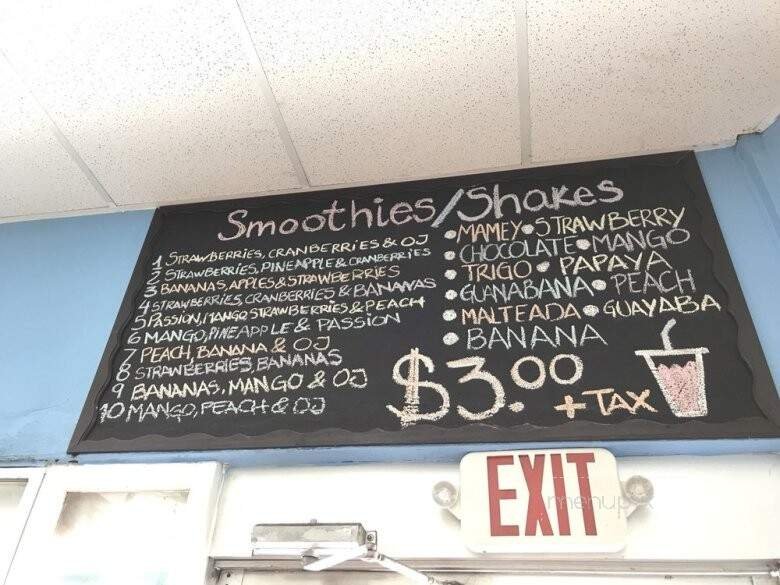 Smoothies/Shakes
1 STRAWBERRIES, CRANBERRIES & OJ
2 STRAWBERRIES, PINEAPPLE & CRANBERRIES
3 BANANAS, APPLES & STRAWBERRIES
4 STRAWBERRIES, CRANBERRIES & BANANAS
5 PASSION, MANGO STRAWBERRIES & PEACH
6 MANGO, PINEAPPLE & PASSION
7 PEACH, BANANA & OJ
8 STRAWBERRIES, BANANAS
9 BANANAS, MANGO & OJ
10 MANGO, PEACH & OJ
• MAMEY • STRAWBERRY
• CHOCOLATE • MANGO
• TRIGO • PAPAYA
• GUANABANA • PEACH
• MALTEADA • GUAYABA
• BANANA
$3.00
+ TAX
EXIT
menupix